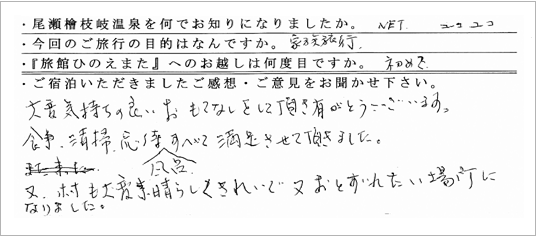 ・尾瀬檜枝岐温泉を何でお知りになりましたか。 NET. ユコユコ
・今回のご旅行の目的はなんですか。 家族旅行.
・『旅館ひのえまた』へのお越しは何度目ですか。 初めて
・ご宿泊いただきましたご感想・ご意見をお聞かせ下さい。
大変気持ちの良いおもてなしをして頂き有がとうございます。
食事、清掃、応待すべて満足させて頂きました。
風呂
又、村も大変素晴らしくきれいで又おとずれたい場所に
なりました。